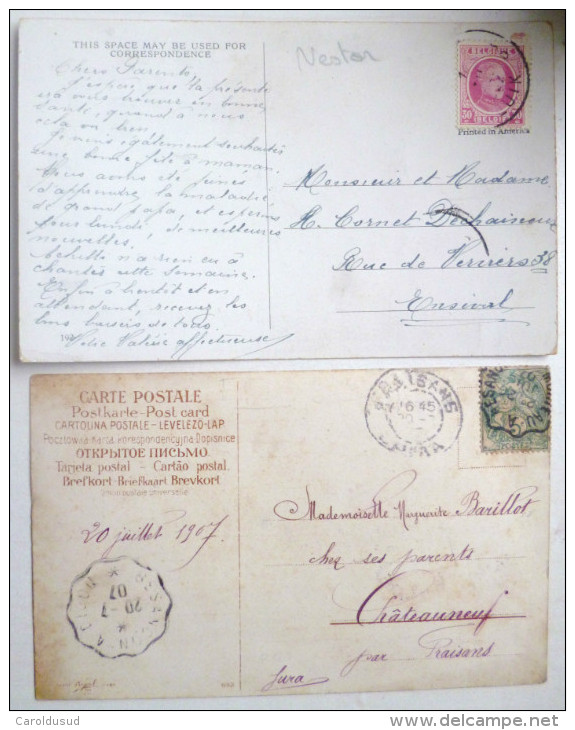 THIS SPACE MAY BE USED FOR
CORRESPONDENCE
Nestor
BELGIQUE
30
Printed in America
Chers Parents,
J'espère que la présente
ira vous trouver en bonne
santé, quand à nous
cela va bien.
Je viens également souhaiter
une bonne fête à maman.
Nous avons été peinés
d'apprendre la maladie
de grand papa, et espérons
pour lundi de meilleures
nouvelles!
n'a rien eu à
chanter cette semaine.
Enfin à bientôt et en
attendant, recevez les
bons baisers de tous.
Votre affectueuse
Monsieur et Madame
H. Cornet
Rue de Verviers 38
Ensival
CARTE POSTALE
Postkarte - Post card
CARTOLINA POSTALE - LEVELEZÖ-LAP
Pocztówka-Karta korespondencyjna-Dopisnice
ОТКРЫТОЕ ПИСЬМО
Tarjeta postal - Cartão postal
Brefkort - Briefkaart Brevkort
Union postale universelle
20 juillet 1907.
20-7
07
16 45
JURA
Mademoiselle Marguerite Barillot
chez ses parents
Châteauneuf
par Fraisans
Jura
Caroldusud
www.delcampe.net